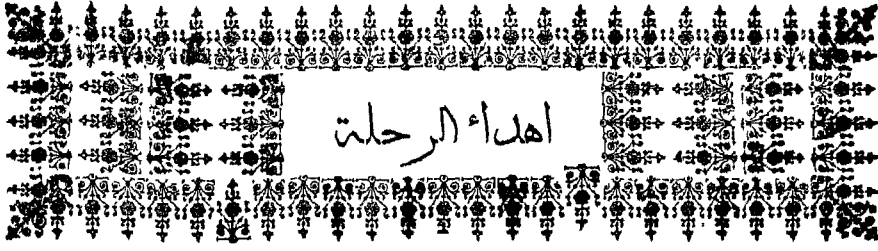 اهداء الرحلة